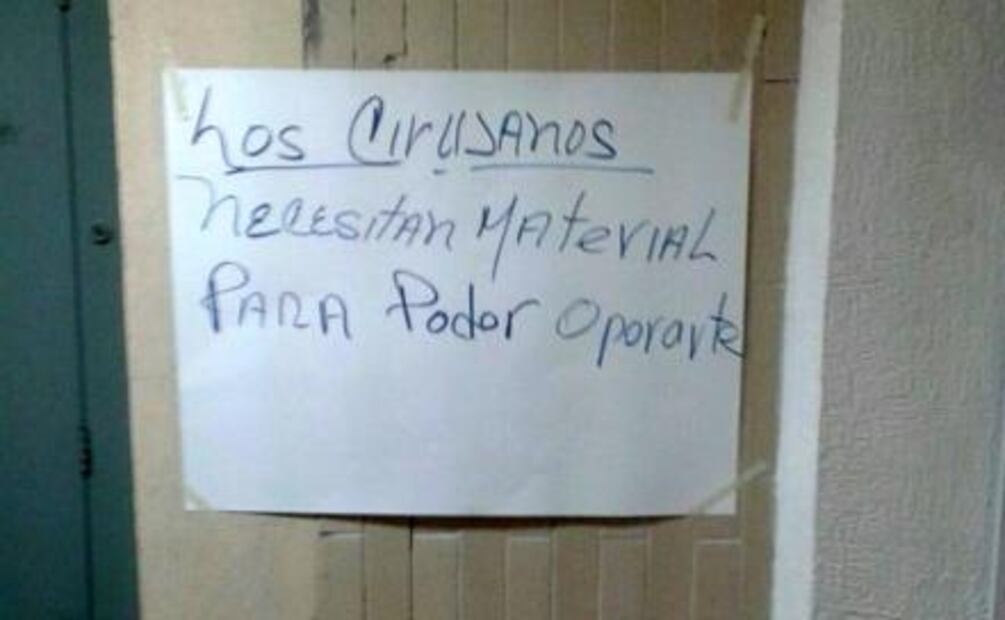 Los CirUJANos
NECESITAN MATerIAL
PARA Podor Oporarte